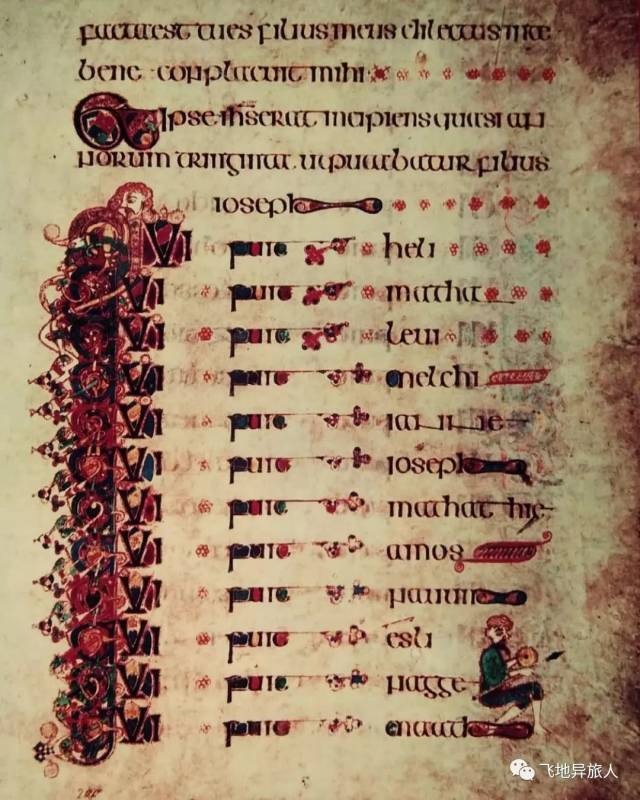 facta est tu es filius meus dilectus in te
bene conplacuit mihi
ipse ihs erat incipiens quasi an
norum triginta ut putabatur filius
ioseph
QUI fuit heli
QUI fuit mathat
QUI fuit levi
QUI fuit melchi
QUI fuit iannae
QUI fuit ioseph
QUI fuit mathathie
QUI fuit amos
QUI fuit nauum
QUI fuit esli
QUI fuit nagge
QUI fuit
飞地异旅人